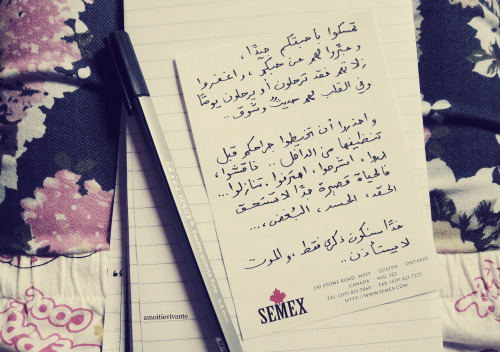 تمسكوا بأحبتكم جيدًا،
و عبّروا لهم عن حبكم، واغفروا
زلاتهم فقد ترحلون أو يرحلون يومًا
وفي القلب لهم حديث وشوق..
و احذروا أن تخيطوا جراحكم قبل
تنظيفها من الداخل.. ناقشوا،
برروا، اشرحوا، اعترفوا، تنازلوا...
فالحياة قصيرة جدًا لا تستحق
الحقد، الحسد، البغض،...
غدًا سنكون ذكرى فقط، والموت
لا يستأذن..
130 STONE ROAD WEST GUELPH, ONTARIO
CANADA N1G 3Z2
TEL (519) 821-5060 FAX (519) 821-7225
HTTP://WWW.SEMEX.COM
SEMEX
amoitievivante